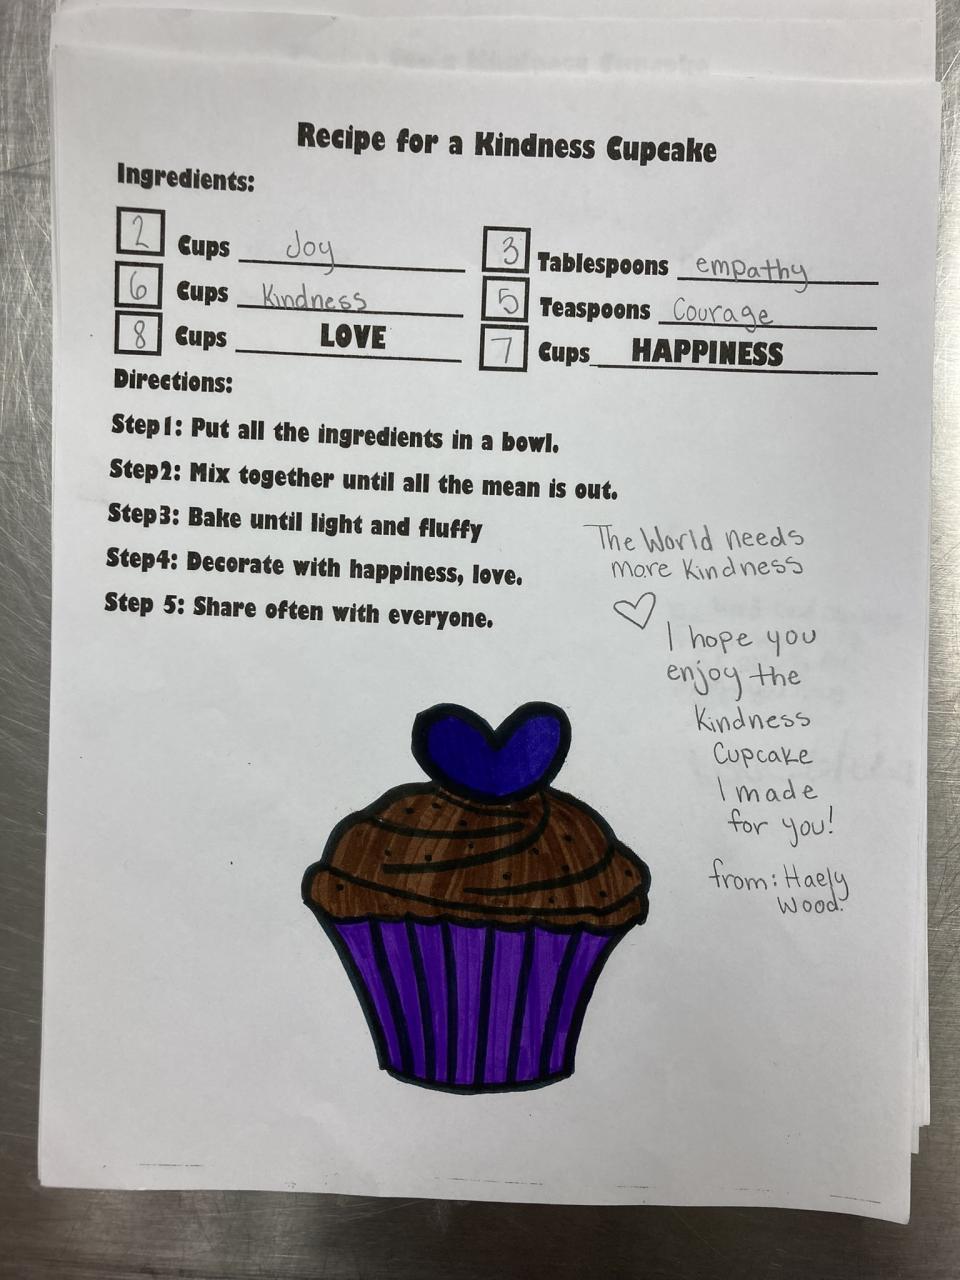 Recipe for a Kindness Cupcake
Ingredients:
2 Cups Joy
3 Tablespoons empathy
6 Cups Kindness
5 Teaspoons Courage
8 Cups LOVE
7 Cups HAPPINESS
Directions:
Step1: Put all the ingredients in a bowl.
Step2: Mix together until all the mean is out.
Step3: Bake until light and fluffy
Step4: Decorate with happiness, love.
Step 5: Share often with everyone.
The World needs
more Kindness
I hope you
enjoy the
Kindness
Cupcake
I made
for you!
from: Haely
Wood.